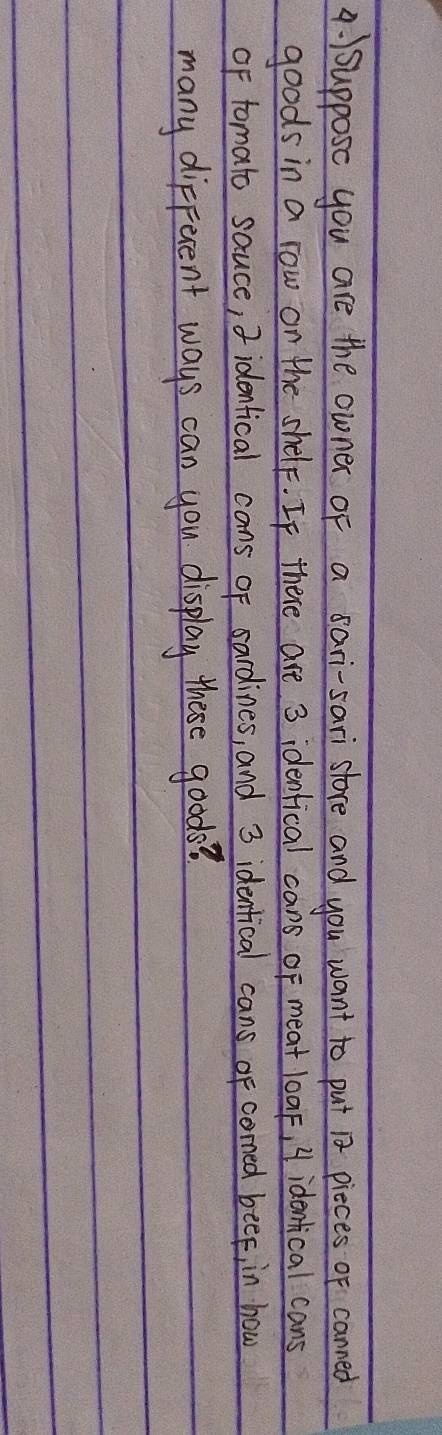 4.) Suppose you are the owner of a sari-sari store and you want to put 12 pieces of canned
goods in a row on the shelf. If there are 3 identical cans of meat loaf, 4 identical cans
of tomato sauce, 2 identical cans of sardines, and 3 identical cans of corned beef, in how
many different ways can you display these goods?